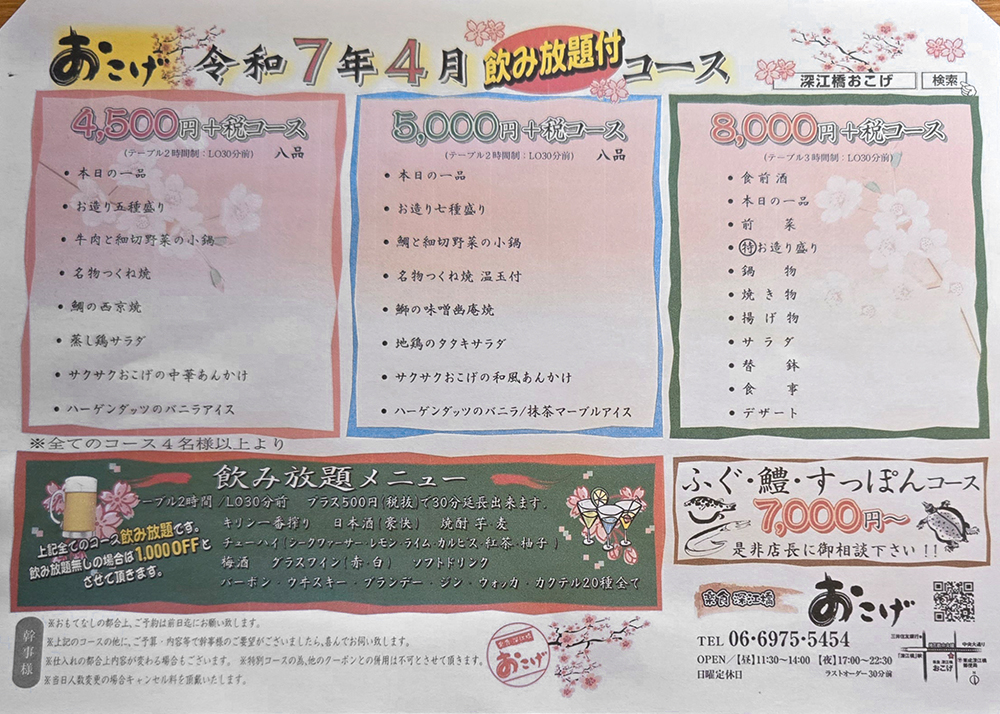 おこげ 令和7年4月 飲み放題付コース
深江橋おこげ 検索
4,500円+税コース
(テーブル2時間制:LO30分前) 八品
・本日の一品
・お造り五種盛り
・牛肉と細切野菜の小鍋
・名物つくね焼
・鯛の西京焼
・蒸し鶏サラダ
・サクサクおこげの中華あんかけ
・ハーゲンダッツのバニラアイス
5,000円+税コース
(テーブル2時間制:LO30分前) 八品
・本日の一品
・お造り七種盛り
・鯛と細切野菜の小鍋
・名物つくね焼 温玉付
・鰤の味噌幽庵焼
・地鶏のタタキサラダ
・サクサクおこげの和風あんかけ
・ハーゲンダッツのバニラ/抹茶マーブルアイス
8,000円+税コース
(テーブル3時間制:LO30分前)
・食前酒
・本日の一品
・前菜
・特お造り盛り
・鍋物
・焼き物
・揚げ物
・サラダ
・替鉢
・食事
・デザート
※全てのコース4名様以上より
飲み放題メニュー
テーブル2時間/LO30分前 プラス500円(税抜)で30分延長出来ます.
上記全てのコース飲み放題です。
飲み放題無しの場合は1,000OFFと
させて頂きます。
キリン一番搾り 日本酒(豪快) 焼酎 芋・麦
チューハイ(シークワァーサー・レモン・ライム・カルピス・紅茶・柚子)
梅酒 グラスワイン(赤・白) ソフトドリンク
バーボン・ウヰスキー・ブランデー・ジン・ウォッカ・カクテル20種全て
ふぐ・鱧・すっぽんコース
7,000円〜
是非店長に御相談下さい!!
幹事様
※おもてなしの都合上、ご予約は前日迄にお願い致します。
※上記のコースの他に、ご予算・内容等で幹事様のご要望がございましたら、喜んでお伺い致します。
※仕入れの都合上内容が変わる場合もございます。 ※特別コースの為、他のクーポンとの併用は不可とさせて頂きます。
※当日人数変更の場合キャンセル料を頂戴いたします。
おこげ
楽食 深江橋 おこげ
TEL 06・6975・5454
OPEN/【昼】11:30〜14:00 【夜】17:00〜22:30
日曜定休日 ラストオーダー30分前
三井住友銀行
中央大通り
「深江橋」駅
おこげ
N